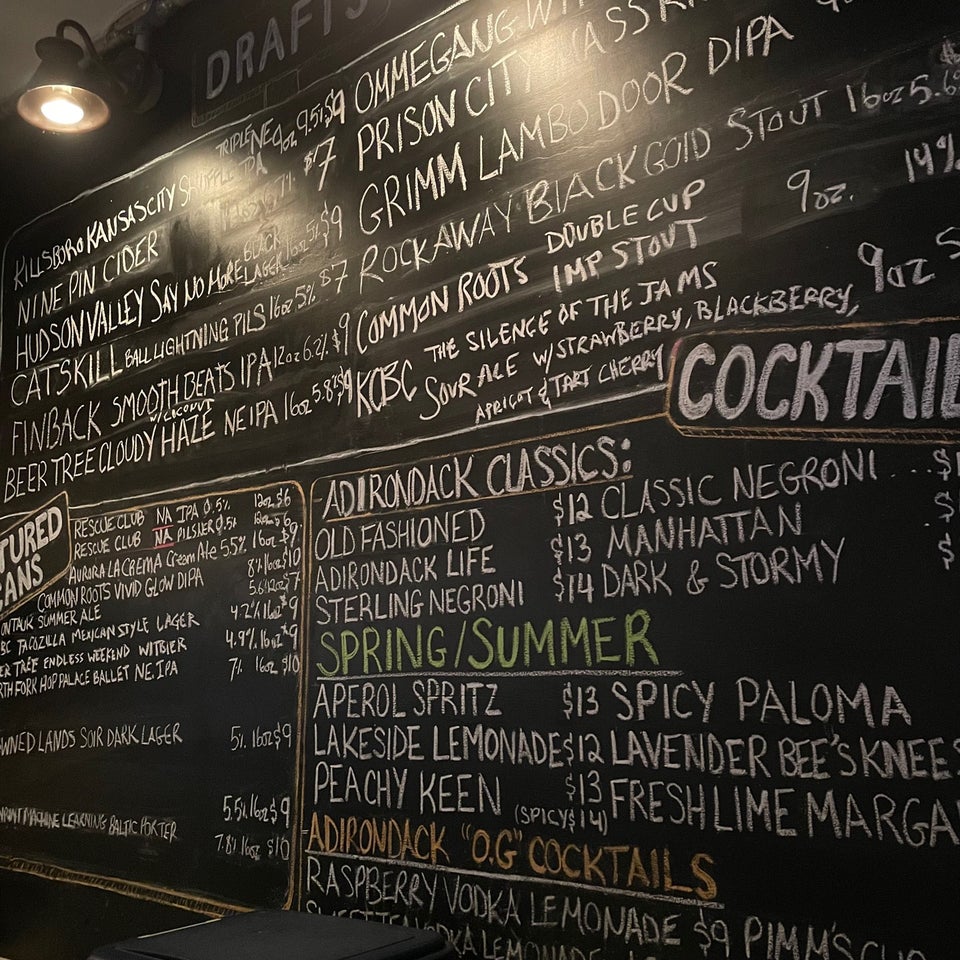 DRAFTS
KILLSBORO KANSAS CITY TRIPLE NE IPA 9oz 9.5% $9
NINE PIN CIDER $7
HUDSON VALLEY SAY NO MORE BLACK LAGER 16oz 5% $9
CATSKILL BALL LIGHTNING PILS 16oz 5% $7
FINBACK SMOOTH BEATS IPA 12oz 6.2% $9
W/COCONUT
BEER TREE CLOUDY HAZE NEIPA 16oz 5.8% $9
OMMEGANG
PRISON CITY MASS
GRIMM LAMBO DOOR DIPA
ROCKAWAY BLACK GOLD STOUT 16oz 5.6
COMMON ROOTS DOUBLE CUP IMP STOUT 9oz. 14%
KCBC THE SILENCE OF THE JAMS 9oz
SOUR ALE W/STRAWBERRY, BLACKBERRY,
APRICOT & TART CHERRY
TURED
CANS
RESCUE CLUB NA IPA 0.5% 12oz $6
RESCUE CLUB NA PILSNER 0.5% 12oz $6
AURORA LA CREMA Cream Ale 5.5% 16oz $9
COMMON ROOTS VIVID GLOW DIPA 8% 16oz $10
ONTAUK SUMMER ALE 5.6% 12oz $7
BC TACOZILLA MEXICAN STYLE LAGER 4.2% 16oz $9
ER TREE ENDLESS WEEKEND WITBIER 4.9% 16oz $9
RTH FORK HOP PALACE BALLET N.E. IPA 7% 16oz $10
WNED LANDS SOIR DARK LAGER 5% 16oz $9
5.5% 16oz $9
MACHINE LEARNING BALTIC PORTER 7.8% 16oz $10
COCKTAIL
ADIRONDACK CLASSICS:
OLD FASHIONED $12 CLASSIC NEGRONI ...$1
ADIRONDACK LIFE $13 MANHATTAN .$
STERLING NEGRONI $14 DARK & STORMY $
SPRING/SUMMER
APEROL SPRITZ $13 SPICY PALOMA
LAKESIDE LEMONADE $12 LAVENDER BEE'S KNEES
PEACHY KEEN $13 FRESH LIME MARGA
(SPICY $14)
ADIRONDACK "O.G" COCKTAILS
RASPBERRY VODKA LEMONADE $9 PIMM'S CUP
SWEET TEA VODKA LEMONADE